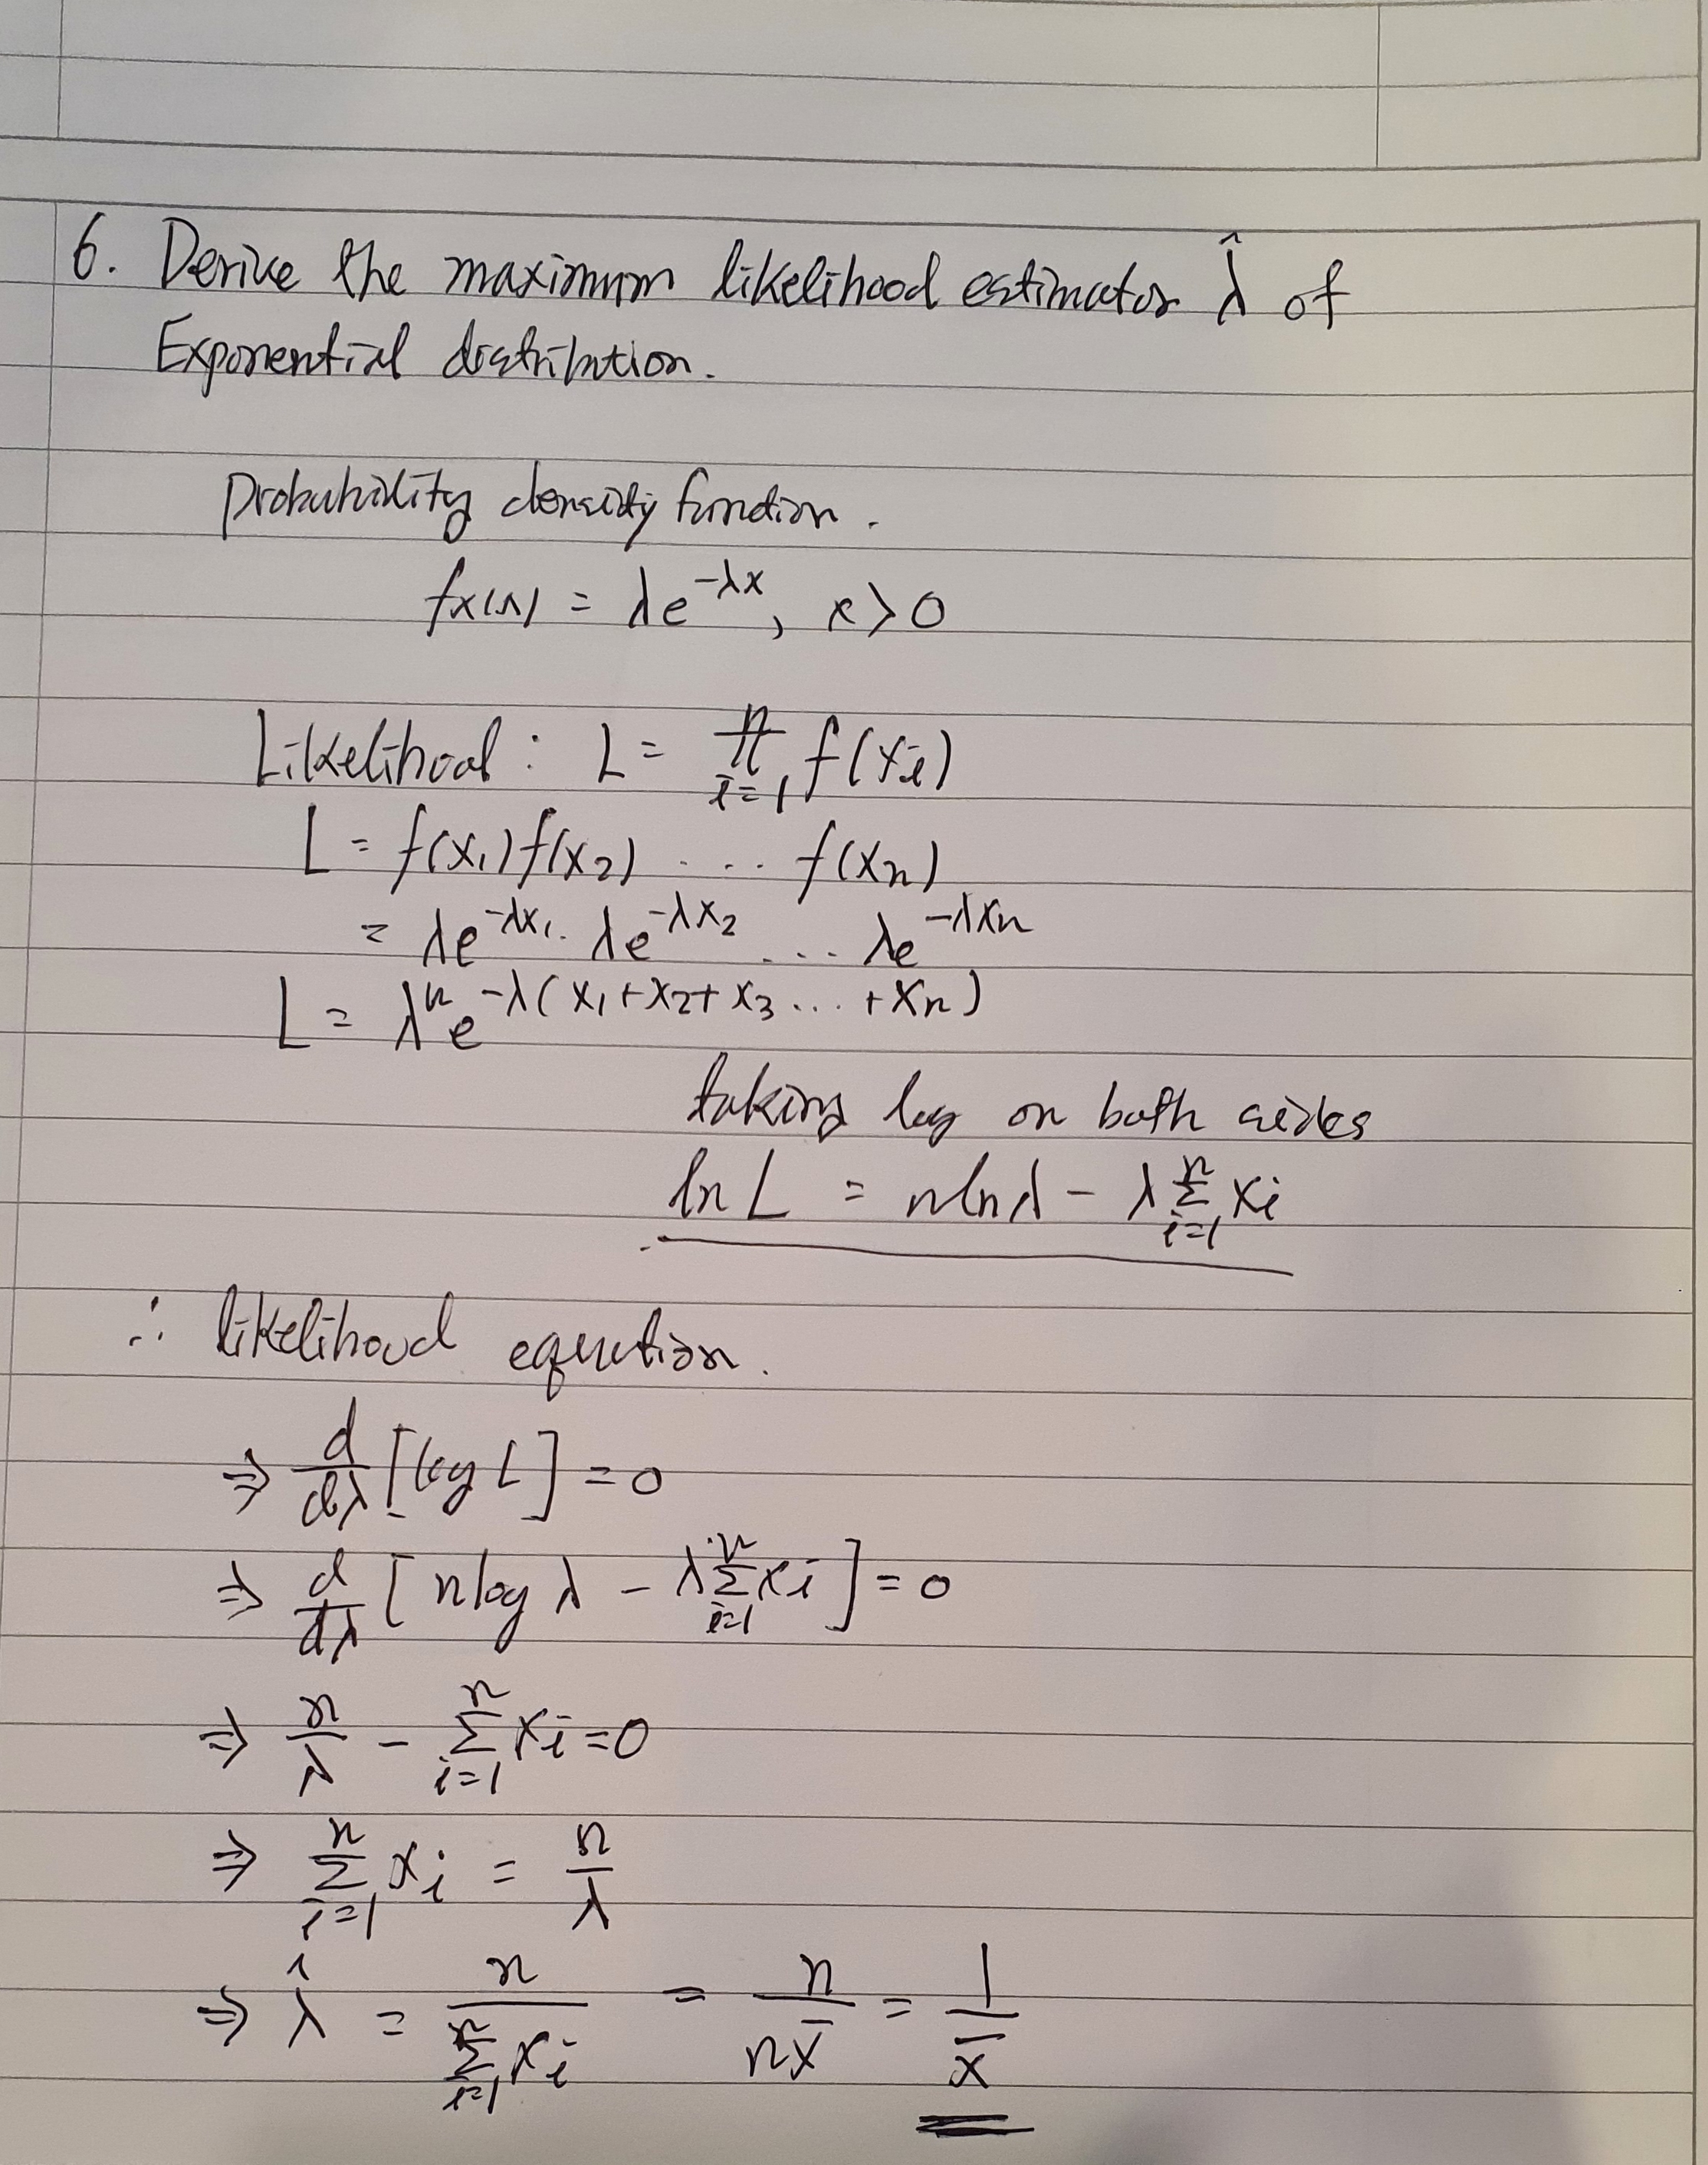 6. Derive the maximum likelihood estimator λ̂ of
Exponential distribution.
Probability density function.
fx(x) = λe^{-λx}, x>0
Likelihood: L = ∏_{i=1}^{n} f(xi)
L = f(x₁)f(x₂) .... f(xn)
= λe^{-λx₁}. λe^{-λx₂} .... λe^{-λxn}
L = λⁿe^{-λ(x₁+x₂+x₃...+xn)}
taking log on both sides
ln L = nlnλ - λ∑_{i=1}^{n} xi
∴ likelihood equation.
⇒ d/dλ [log L] = 0
⇒ d/dλ [nlog λ - λ∑_{i=1}^{n} xi] = 0
⇒ n/λ - ∑_{i=1}^{n} xi = 0
⇒ ∑_{i=1}^{n} xi = n/λ
⇒ λ̂ = n/∑_{i=1}^{n} xi = n/nx̄ = 1/x̄